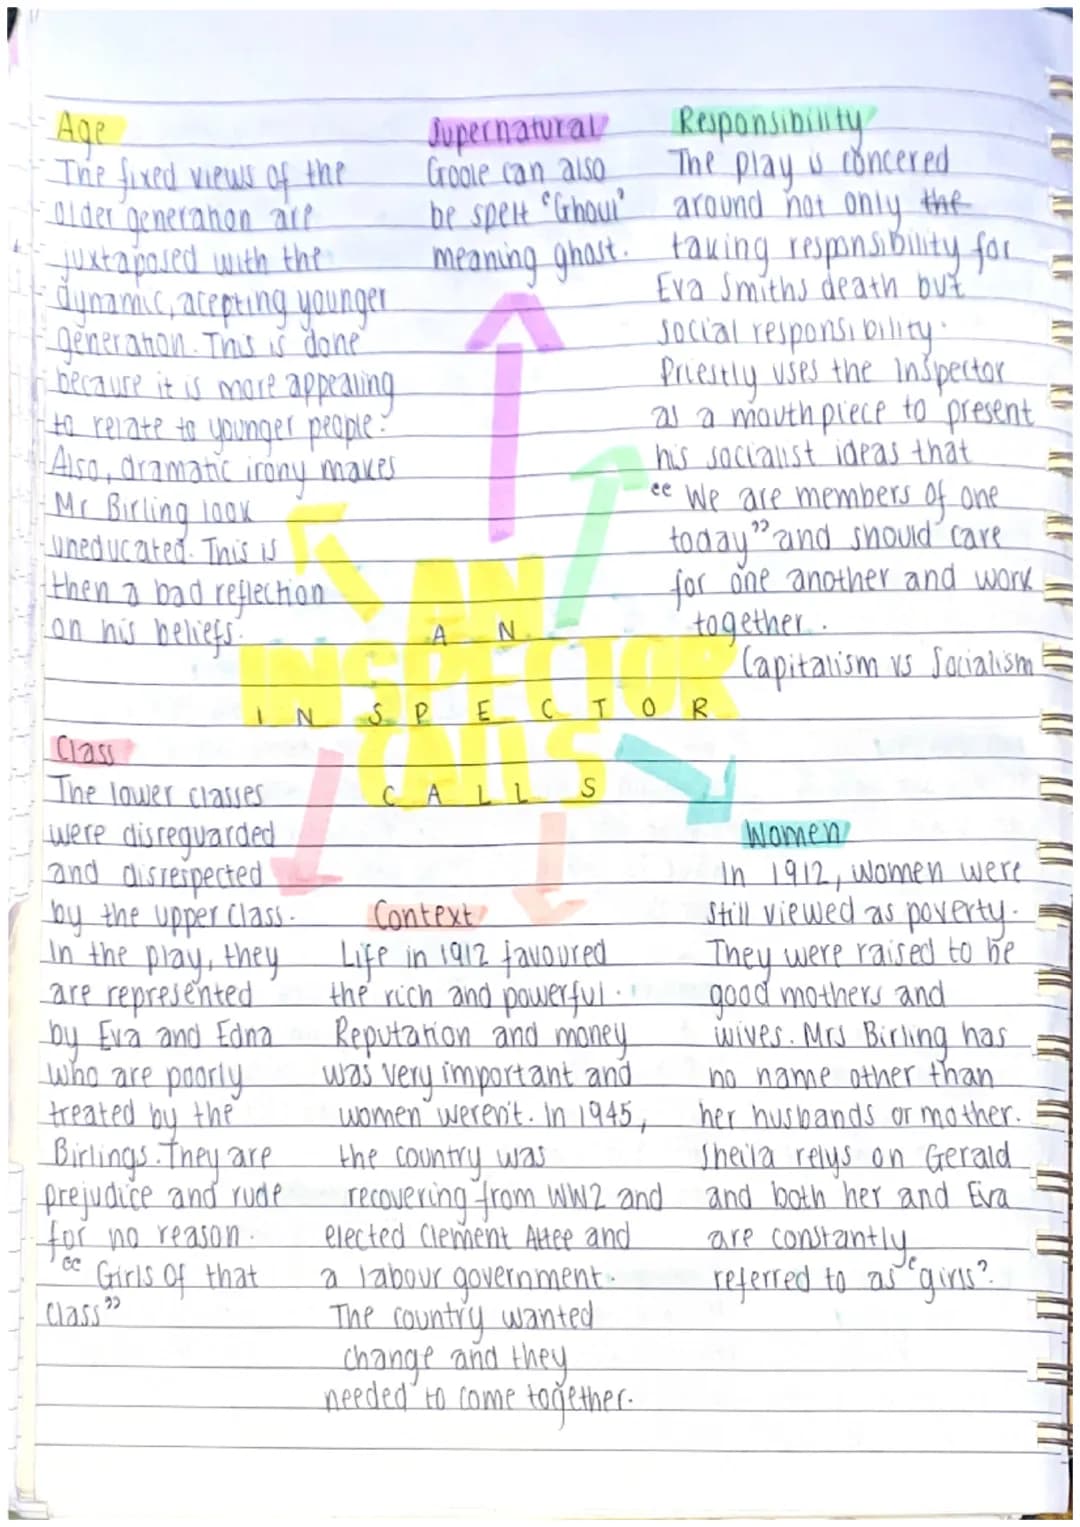 Age
The fixed views of the
older generation are
juxtaposed with the
dynamic, acepting younger
generation. This is done
because it is more appealing
to relate to younger people.
Also, dramatic irony makes
Mr Birling look
uneducated. This is
then a bad reflection
on his beliefs.
Supernatural
Goole can also
be spelt 'Ghoul'
meaning ghost.
Responsibility
The play is concered
around not only the
taking responsibility for
Eva Smiths death but
social responsibility.
Priestly uses the Inspector
as a mouthpiece to present
his socialist ideas that
"We are members of one
today" and should care
for one another and work
together.
Capitalism vs Socialism
AN
A N
INSPECTOR
I N S P E C T O R
CALLS
C A L L S
Class
The lower classes
were disreguarded
and disrespected
by the upper class.
In the play, they
are represented
by Eva and Edna
who are poorly
treated by the
Birlings. They are
prejudice and rude
for no reason.
"Girls of that
class"
Context
Life in 1912 favoured
the rich and powerful.
Reputation and money
was very important and
women weren't. In 1945,
the country was
recovering from WW2 and
elected Clement Attee and
a labour government.
The country wanted
change and they
needed to come together.
Women
In 1912, women were
still viewed as poverty.
They were raised to be
good mothers and
wives. Mrs Birling has
no name other than
her husbands or mother.
Sheila relys on Gerald
and both her and Eva
are constantly
referred to as 'girls'.